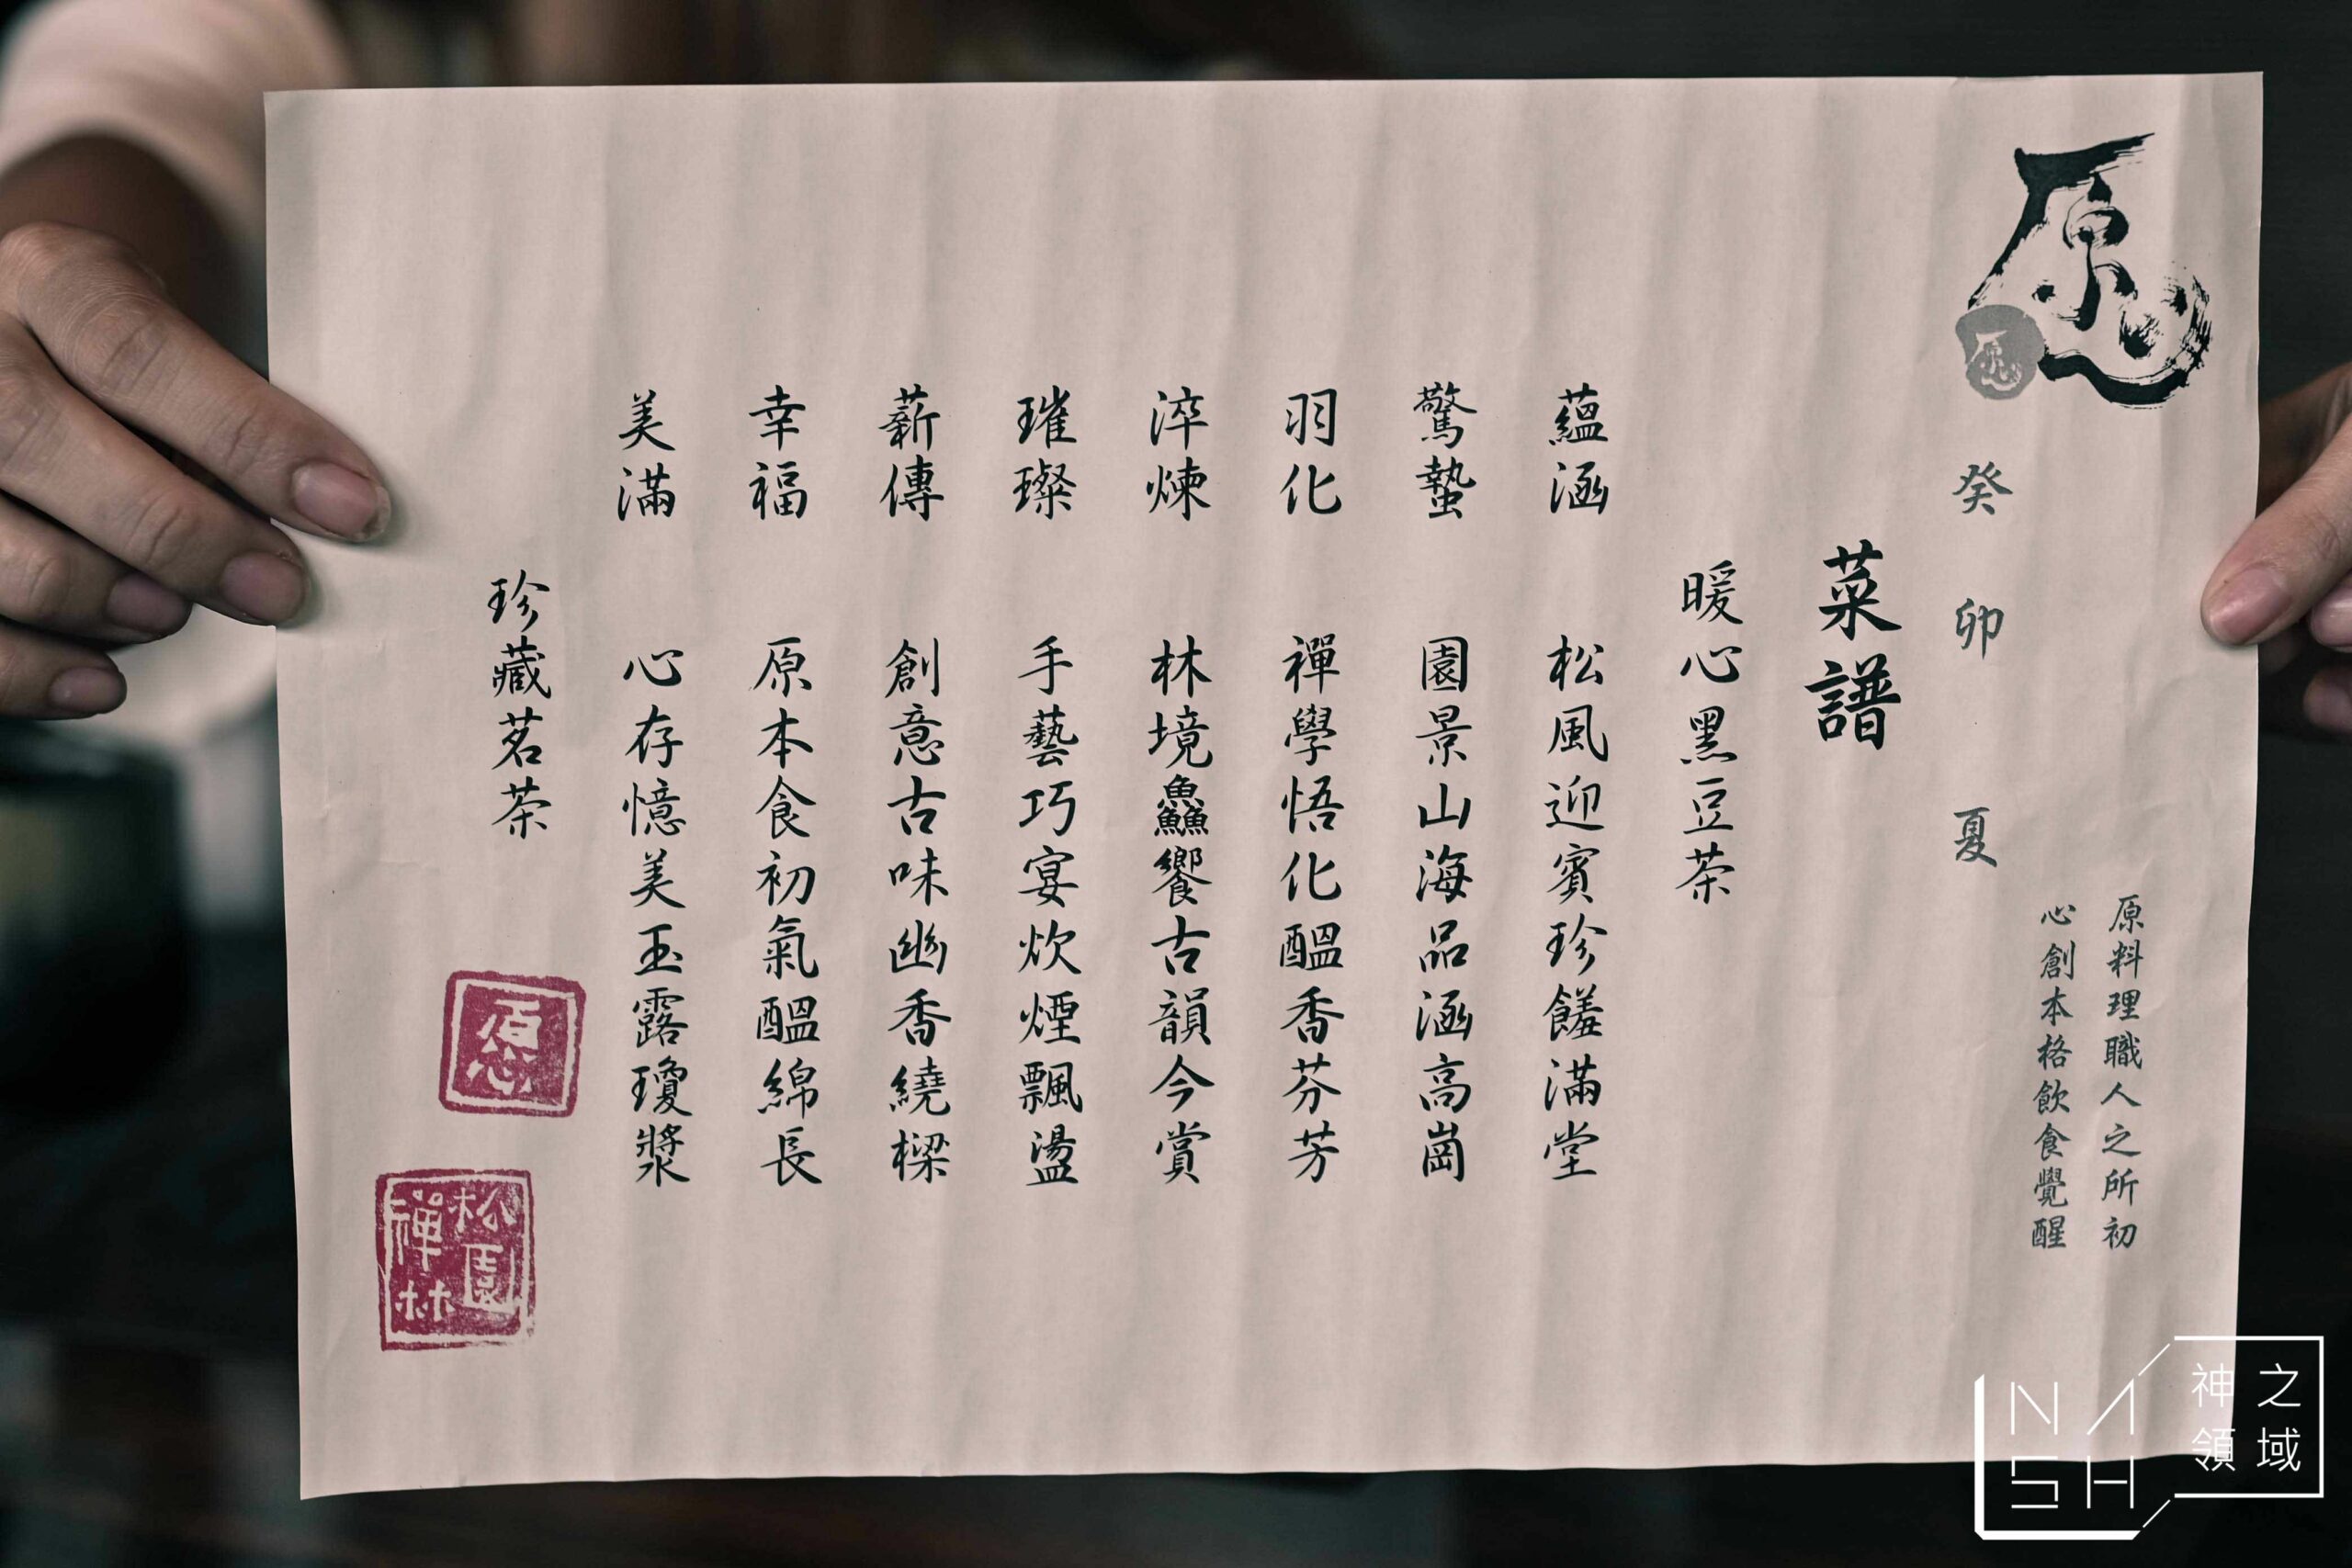 原心
癸卯 夏
原料理職人之所初
心創本格飲食覺醒
菜譜
暖心黑豆茶
蘊涵 松風迎賓珍饈滿堂
驚蟄 園景山海品涵高崗
羽化 禪學悟化醞香芬芳
淬煉 林境鱻饗古韻今賞
璀璨 手藝巧宴炊煙飄盪
薪傳 創意古味幽香繞樑
幸福 原本食初氣醞綿長
美滿 心存憶美玉露瓊漿
珍藏茗茶
原心
松園
禪林
NASH
神之
領域